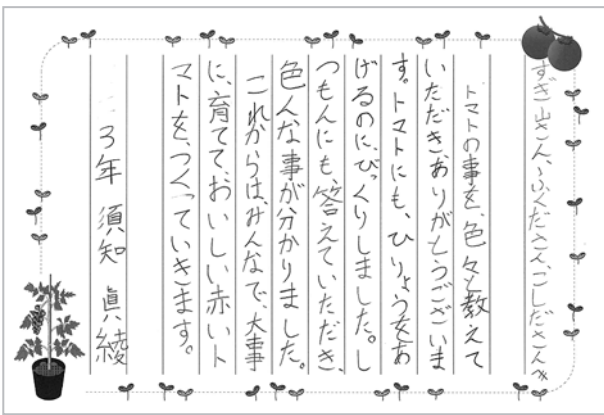 すぎ山さん、ふくださん、ごしださんへ
トマトの事を、色々と教えて
いただきありがとうございま
す。トマトにも、ひりょうをあ
げるのに、びっくりしました。し
つもんにも、答えていただき、
色んな事が分かりました。
これからは、みんなで、大事
に、育てて、おいしい赤いト
マトを、つくっていきます。
3年 須知 眞綾